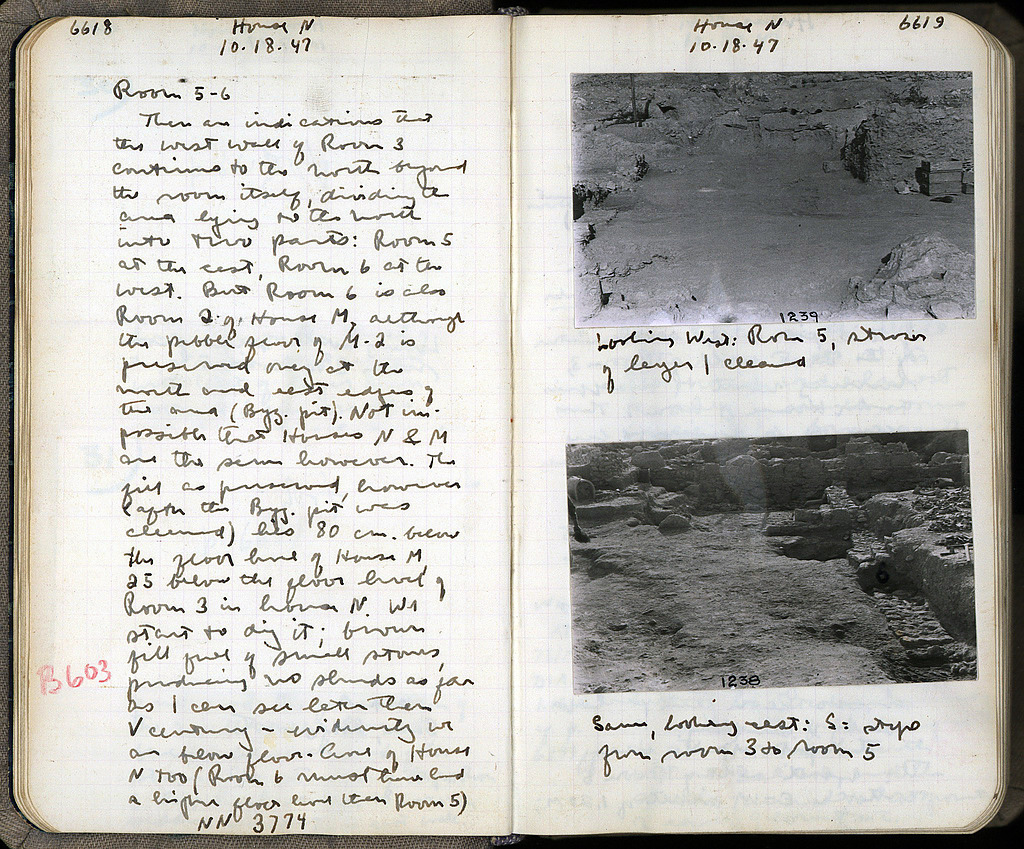 6618
House N
10.18.47
Room 5-6
There are indications that
the west wall of Room 3
continues to the north beyond
the room itself, dividing the
area lying to the north
into two parts: Room 5
at the east, Room 6 at the
west. But Room 6 is also
Room 2 of House M, although
the pebble floor of M-2 is
preserved only at the
north and east edges of
the area (Byz. pit). Not im-
possible that Houses N & M
are the same however. The
fill as preserved, however
(after the Byz. pit was
cleaned) lies 80 cm. below
the floor level of House M,
25 below the floor level of
Room 3 in house N. We
start to dig it; brown
fill full of small stones,
producing no sherds as far
as I can see later than
V century - evidently we
are below floor-level of House
N too (Room 6 must have had
a higher floor level than Room 5)
B603
NN 3774
6619
House N
10.18.47
1239
Looking West: Room 5, stroses
of layer / cleaned
1238
6
Same, looking east: S: steps
from room 3 to room 5